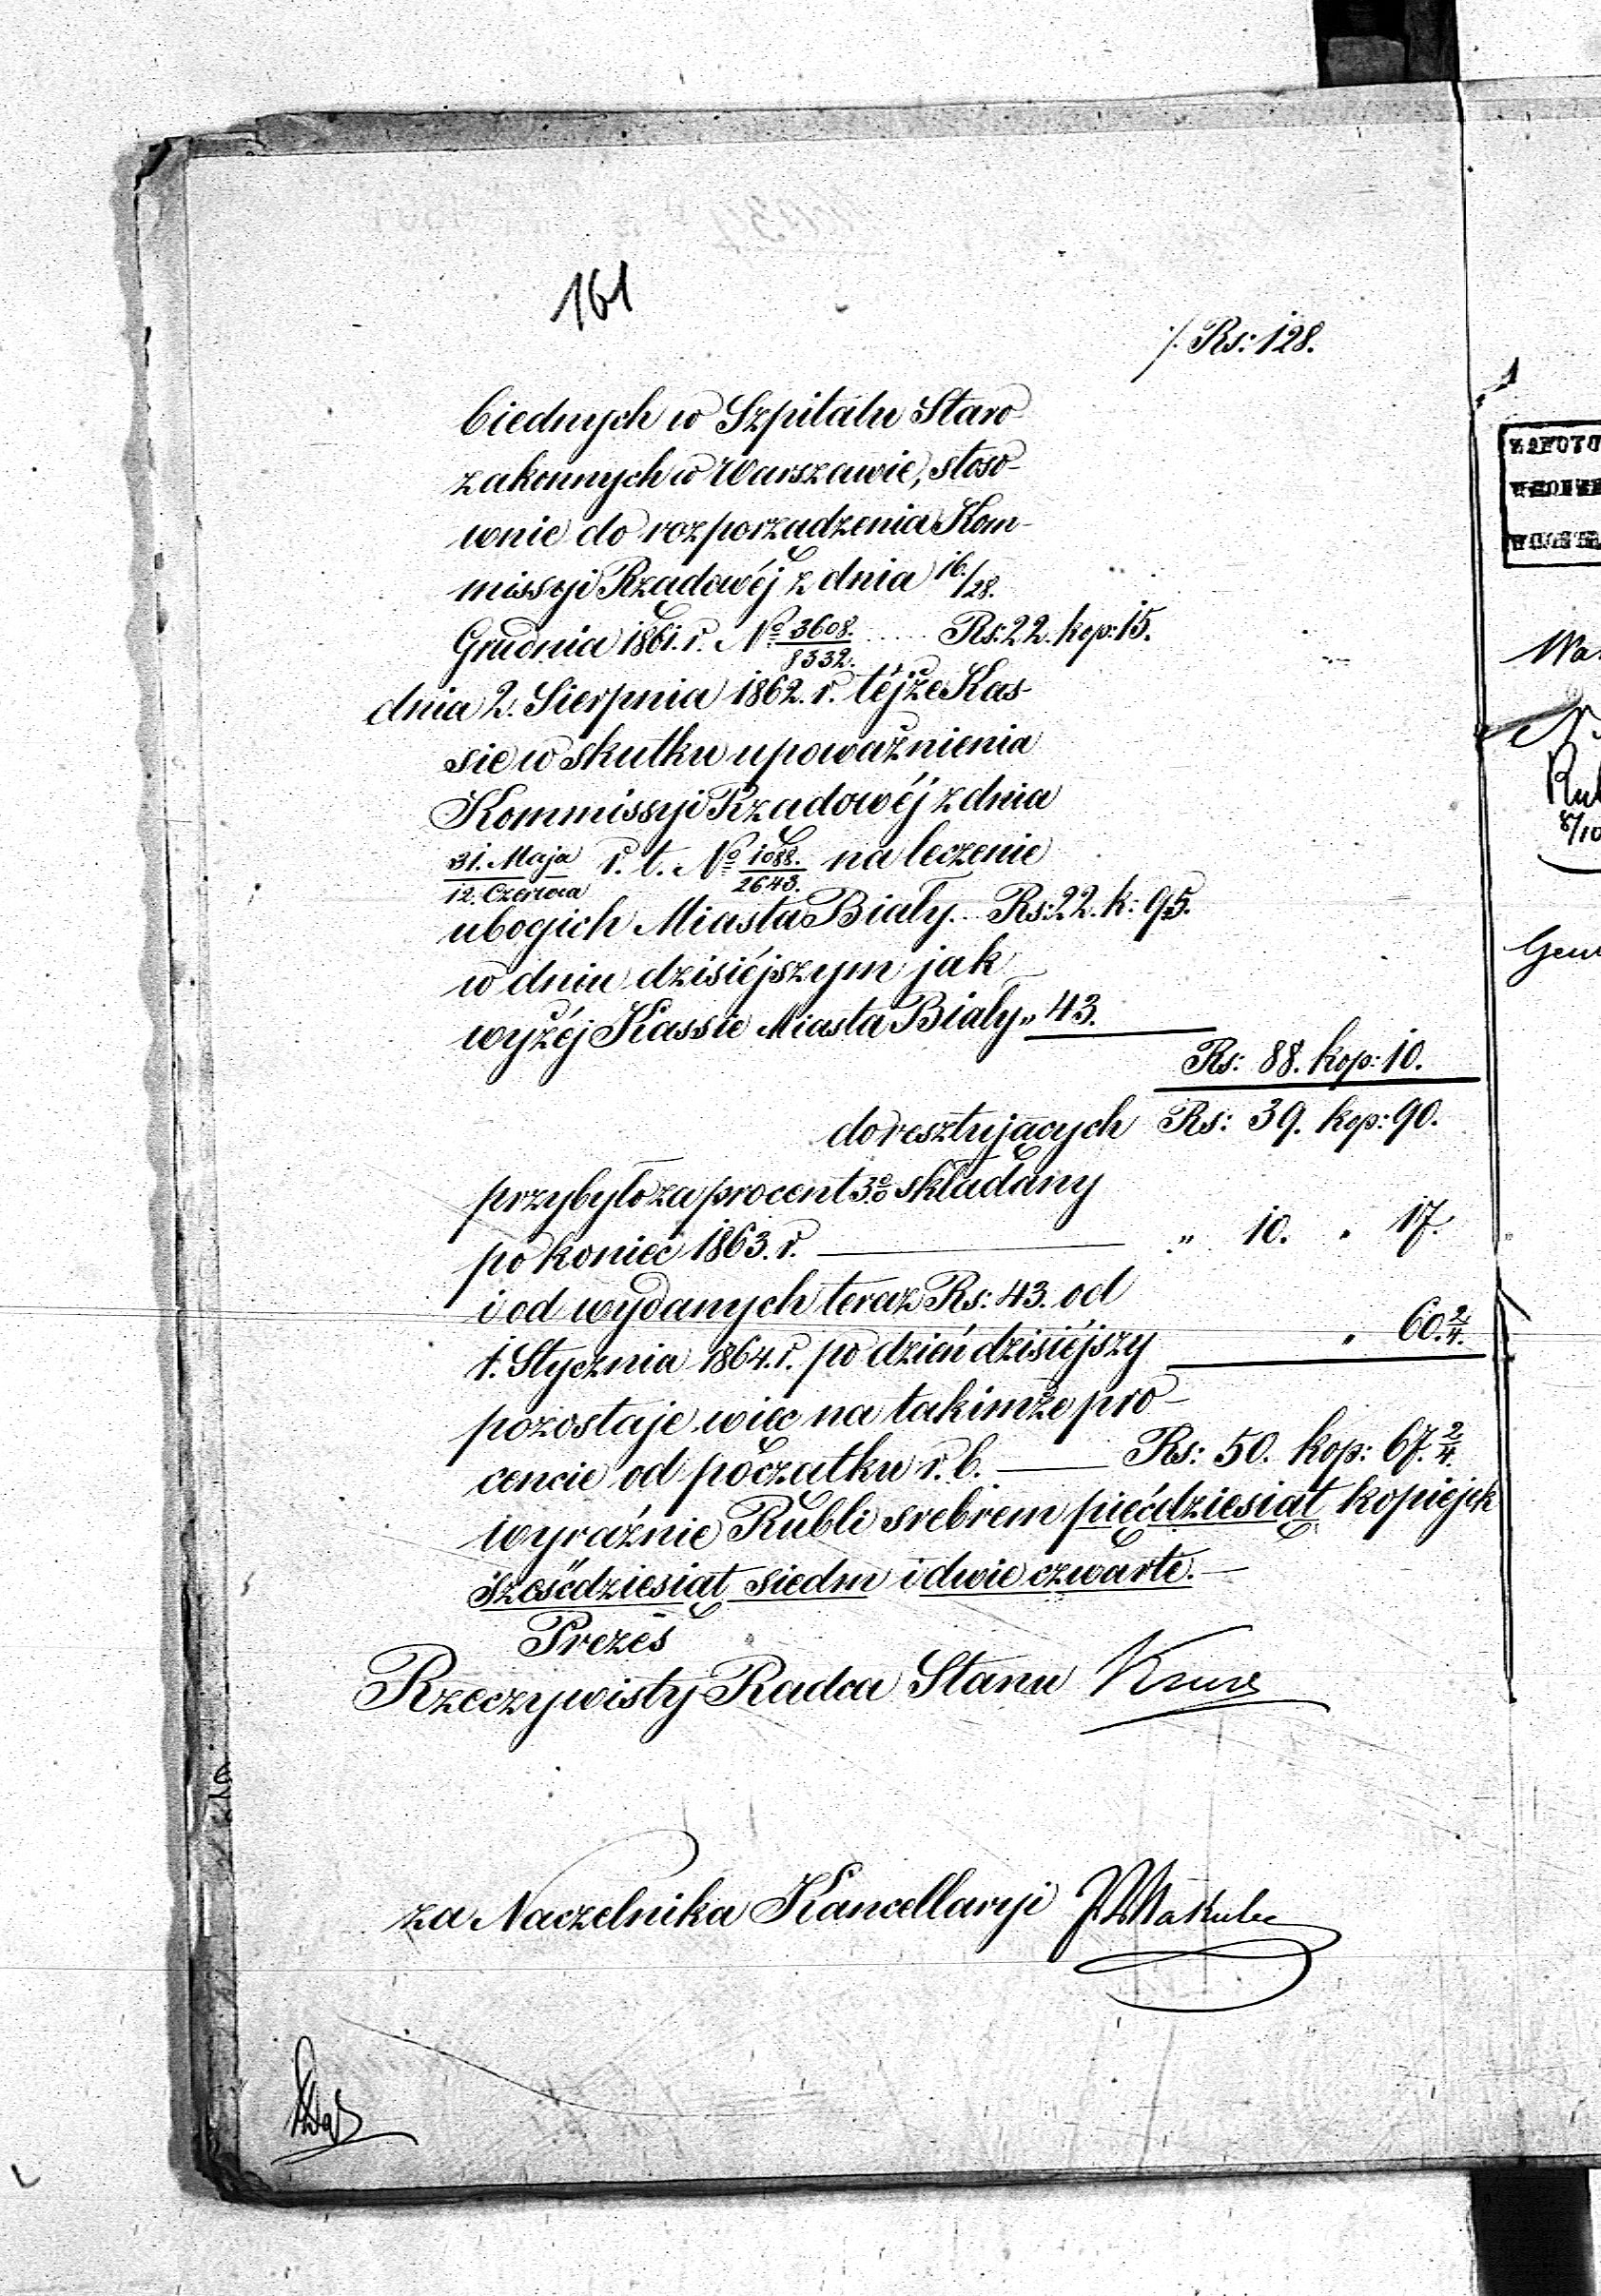 161
./. Rs: 128.
biednych w Szpitalu Staro
zakonnych w Warszawie, stoso-
wnie do rozporządzenia Kom-
missyi Rządowéj z dnia 16./28.
Grudnia 1861. r. No 3608./8332. .... Rs: 22. kop: 15.
dnia 2. Sierpnia 1862. r. téjże Kas-
sie w skutku upoważnienia
Kommissyi Rządowéj z dnia
31. Maja/12. Czerwca r. t. No 1088./2643. na leczenie
ubogich Miasta Biały... Rs: 22. k: 95.
w dniu dzisiéjszym jak
wyżéj Kassie Miasta Biały „ 43.
Rs: 88. kop: 10.
do resztujących Rs: 39. kop: 90.
przybyło za procent 3% składany
po koniec 1863. r. „ 10. „ 17.
i od wydanych teraz Rs: 43. od
1. Stycznia 1864. r. po dzień dzisiéjszy „ 60. 2/4.
pozostaje więc na takimże pro-
cencie od początku r. b. Rs: 50. kop: 67. 2/4.
wyraźnie Rubli srebrem pięćdziesiąt kopiejek
sześćdziesiąt siedm i dwie czwarte.
Prezes
Rzeczywisty Radca Stanu
za Naczelnika Kancellaryi
ZAFOTO
Wa
Rub
8/10
Gen